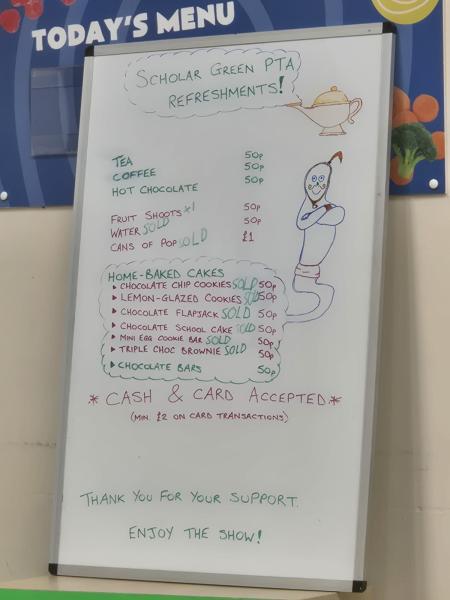 TODAY'S MENU
SCHOLAR GREEN PTA
REFRESHMENTS!
TEA 50p
COFFEE 50p
HOT CHOCULATE 50p
FRUIT SHOOTS x1 50p
WATER SOLD 50p
CANS OF POP SOLD £1
HOME-BAKED CAKES
▸ CHOCOLATE CHIP COOKIES SOLD 50p
▸ LEMON-GLAZED COOKIES SOLD 50p
▸ CHOCOLATE FLAPJACK SOLD 50p
▸ CHOCOLATE SCHOOL CAKE SOLD 50p
▸ MINI EGG COOKIE BAR SOLD 50p
▸ TRIPLE CHOC BROWNIE SOLD 50p
▸ CHOCOLATE BARS 50p
* CASH & CARD ACCEPTED *
(MIN. £2 ON CARD TRANSACTIONS)
THANK YOU FOR YOUR SUPPORT.
ENJOY THE SHOW!